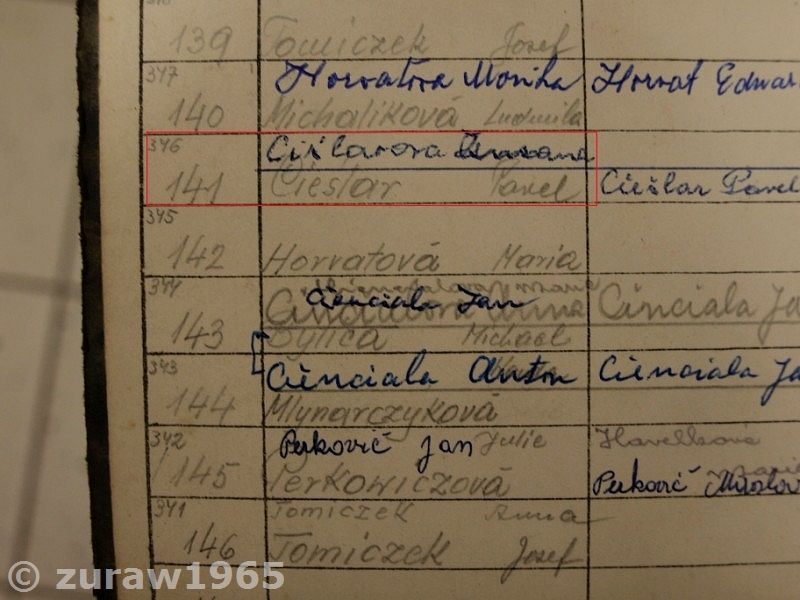 139 Tomiczek Josef
347 Horvatova Monika Horvat Edwar
140 Michaliková Ludmila
346 Cišlarova Zuzana
141 Cieślar Pavel Ciešlar Pavel
345
142 Horvatová Maria
344
Cienciala Jan Cinciala Ja
143 Bylica Michael
343 Cienciala Anton Cienciala Ja
144 Mlynarczyková
342 Perkovič Jan Julie Havelková
145 Perkowiczová Perkovič
341 Tomiczek Anna
146 Tomiczek Josef
© zuraw1965